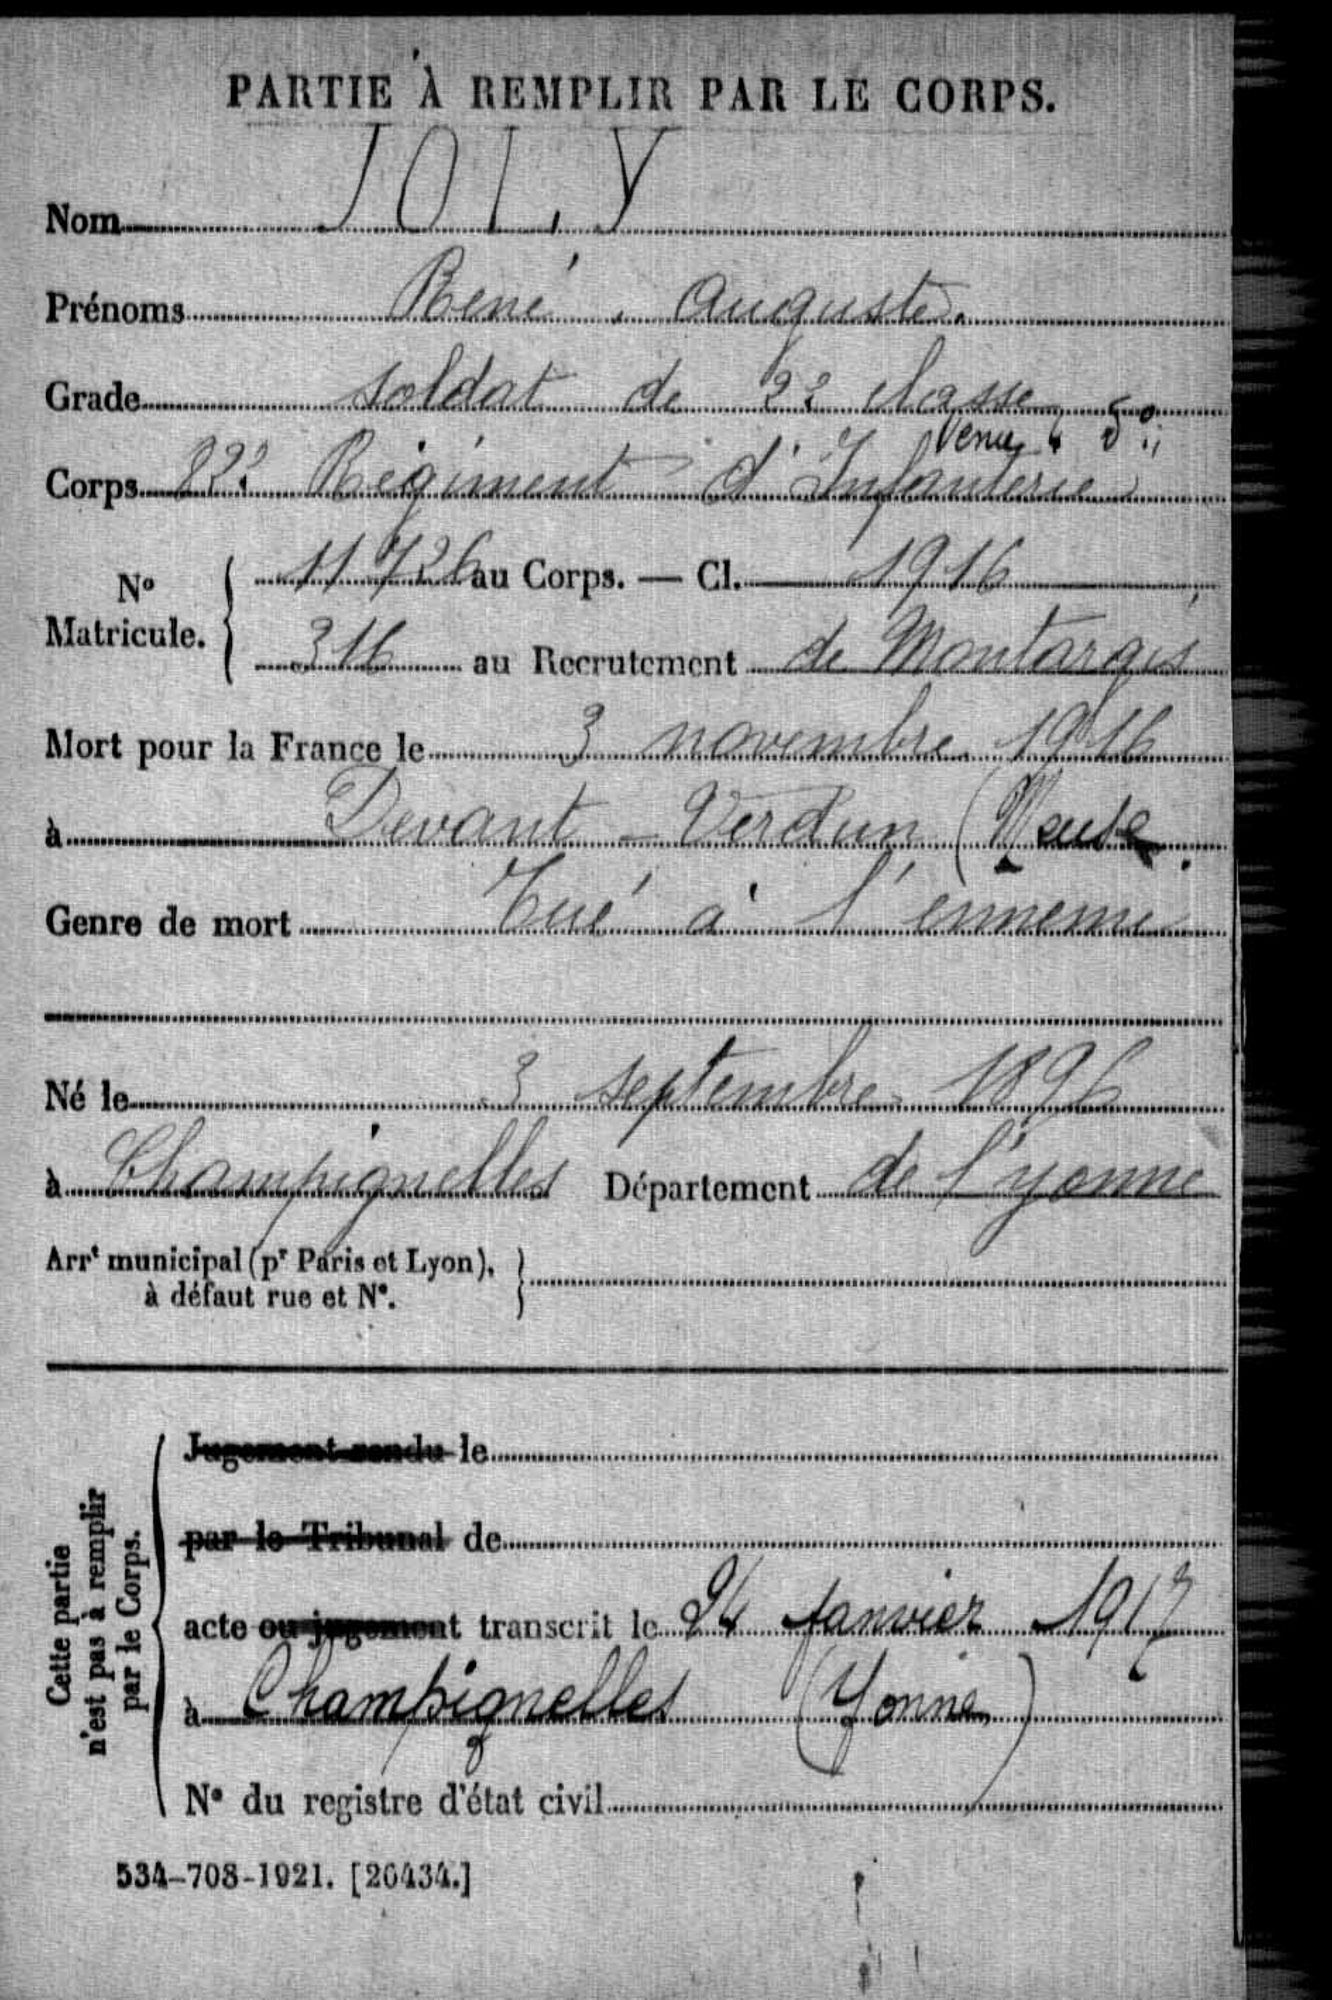 PARTIE À REMPLIR PAR LE CORPS.
Nom JOLY
Prénoms René, Auguste.
Grade soldat de 2e classe
Corps Régiment d'Infanterie
11726 au Corps. — Cl. 1916
N° Matricule.
316 au Recrutement de Montargis
Mort pour la France le 3 novembre 1916
à Devant-Verdun (Meuse
Genre de mort Tué à l'ennemi
Né le 3 septembre 1896
à Champignelles Département de l'yonne
Arrt municipal (pr Paris et Lyon),
à défaut rue et N°.
Cette partie
n'est pas à remplir
par le Corps.
Jugement rendu le
par le Tribunal de
acte ou jugement transcrit le 24 Janvier 1917
à Champignelles (Yonne)
N° du registre d'état civil
534-708-1921. [26434.]